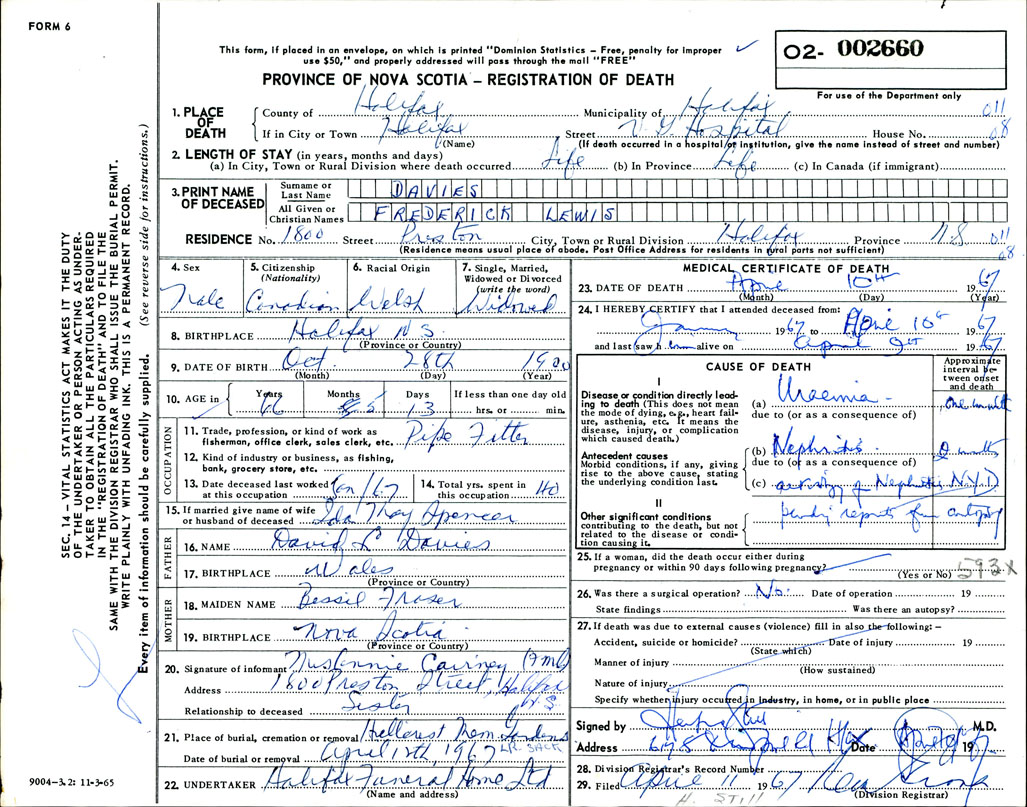 FORM 6
This form, if placed in an envelope, on which is printed "Dominion Statistics – Free, penalty for improper
use $50," and properly addressed will pass through the mail "FREE"
02- 002660
PROVINCE OF NOVA SCOTIA – REGISTRATION OF DEATH
For use of the Department only
1. PLACE OF DEATH County of Halifax Municipality of Halifax 011
If in City or Town Halifax Street V G Hospital House No. 08
(Name) (If death occurred in a hospital or institution, give the name instead of street and number)
2. LENGTH OF STAY (in years, months and days)
(a) In City, Town or Rural Division where death occurred Life (b) In Province Life (c) In Canada (if immigrant)
3. PRINT NAME OF DECEASED
Surname or Last Name DAVIES
All Given or Christian Names FREDERICK LEWIS
RESIDENCE No. 1800 Street Preston City, Town or Rural Division Halifax Province N.S. 011
(Residence means usual place of abode. Post Office Address for residents in rural parts not sufficient) 08
4. Sex Male
5. Citizenship (Nationality) Canadian
6. Racial Origin Welsh
7. Single, Married, Widowed or Divorced (write the word) Widowed
8. BIRTHPLACE Halifax N.S.
(Province or Country)
9. DATE OF BIRTH Oct. 28th 1900
(Month) (Day) (Year)
10. AGE in Years 66 Months 5 Days 13 If less than one day old
hrs. or min.
OCCUPATION
11. Trade, profession, or kind of work as
fisherman, office clerk, sales clerk, etc. Pipe Fitter
12. Kind of industry or business, as fishing,
bank, grocery store, etc.
13. Date deceased last worked at this occupation Jan/67
14. Total yrs. spent in this occupation 40
15. If married give name of wife
or husband of deceased Ida May Spencer
FATHER
16. NAME David L Davies
17. BIRTHPLACE Wales
(Province or Country)
MOTHER
18. MAIDEN NAME Bessie Fraser
19. BIRTHPLACE Nova Scotia
(Province or Country)
20. Signature of informant Mrs Annie Cairney
Address 1800 Preston Street, Halifax N.S.
Relationship to deceased Sister
21. Place of burial, cremation or removal Hillcrest Mem Gardens
Date of burial or removal April 13th, 1967 LR. SACK
22. UNDERTAKER Halifax Funeral Home Ltd
(Name and address)
MEDICAL CERTIFICATE OF DEATH
23. DATE OF DEATH April 10th 1967
(Month) (Day) (Year)
24. I HEREBY CERTIFY that I attended deceased from:
January 1967 to April 10th 1967
and last saw him alive on April 9th 1967
CAUSE OF DEATH
Approximate interval between onset and death
I
Disease or condition directly leading to death (This does not mean
the mode of dying, e.g., heart failure, asthenia, etc. It means the
disease, injury, or complication
which caused death.)
(a) Uraemia One month
due to (or as a consequence of)
Antecedent causes
Morbid conditions, if any, giving
rise to the above cause, stating
the underlying condition last.
(b) Nephritis months
due to (or as a consequence of)
(c) of Nephritis N.Y.D
II
Other significant conditions
contributing to the death, but not
related to the disease or condition causing it.
pending reports from autopsy
25. If a woman, did the death occur either during
pregnancy or within 90 days following pregnancy?
(Yes or No) 593X
26. Was there a surgical operation? No. Date of operation 19
State findings Was there an autopsy?
27. If death was due to external causes (violence) fill in also the following: –
Accident, suicide or homicide? Date of injury 19
(State which)
Manner of injury
(How sustained)
Nature of injury
Specify whether injury occurred in industry, in home, or in public place
Signed by M.D.
Address Hfx Date 19
28. Division Registrar's Record Number
29. Filed April 11 1967
H. STILL (Division Registrar)
SEC. 14 – VITAL STATISTICS ACT MAKES IT THE DUTY
OF THE UNDERTAKER OR PERSON ACTING AS UNDER-
TAKER TO OBTAIN ALL THE PARTICULARS REQUIRED
IN THE "REGISTRATION OF DEATH" AND TO FILE THE
SAME WITH THE DIVISION REGISTRAR WHO SHALL ISSUE THE BURIAL PERMIT.
WRITE PLAINLY WITH UNFADING INK. THIS IS A PERMANENT RECORD.
Every item of information should be carefully supplied. (See reverse side for instructions.)
9004–3.2: 11-3-65